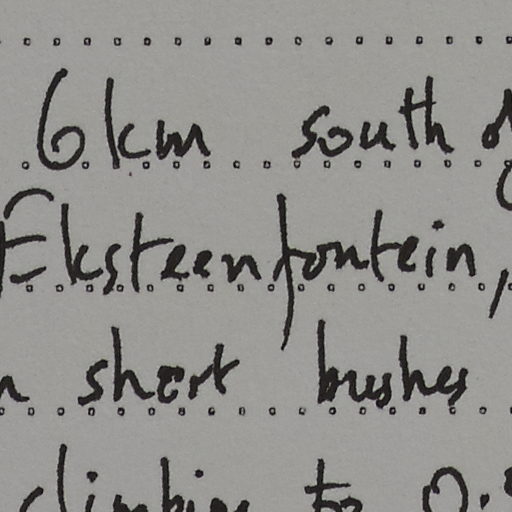 6km south of
Eksteenfontein,
short bushes
climbing to 0.